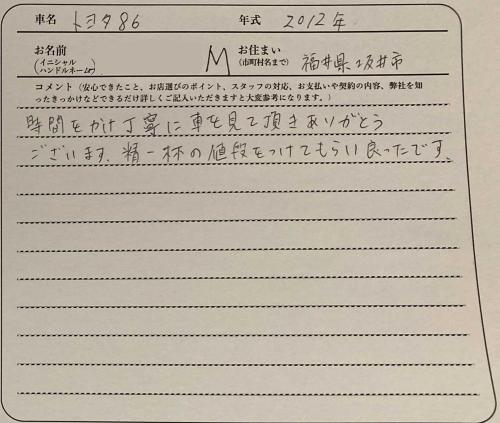 車名 トヨタ86 年式 2012年
お名前 (イニシャル ハンドルネーム) M お住まい (市町村名まで) 福井県坂井市
コメント(安心できたこと、お店選びのポイント、スタッフの対応、お支払いや契約の内容、弊社を知
ったきっかけなどできるだけ詳しくご記入いただきますと大変参考になります。)
時間をかけ丁寧に車を見て頂きありがとう
ございます。精一杯の値段をつけてもらい良ったです。